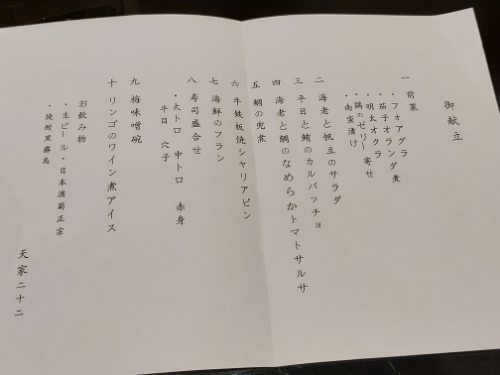 御献立
一 前菜
・フォアグラ
・茄子オランダ煮
・明太オクラ
・鶏のゼリー寄せ
・南蛮漬け
二 海老と帆立のサラダ
三 平目と鯖のカルパッチョ
四 海老と鯛のなめらかトマトサルサ
五 鯛の兜煮
六 牛鉄板焼シャリアピン
七 海鮮のフラン
八 寿司盛合せ
・大トロ 中トロ 赤身
平目 穴子
九 梅味噌碗
十 リンゴのワイン煮アイス
お飲み物
・生ビール・日本酒菊正宗
・焼酎黒霧島
天家二十二